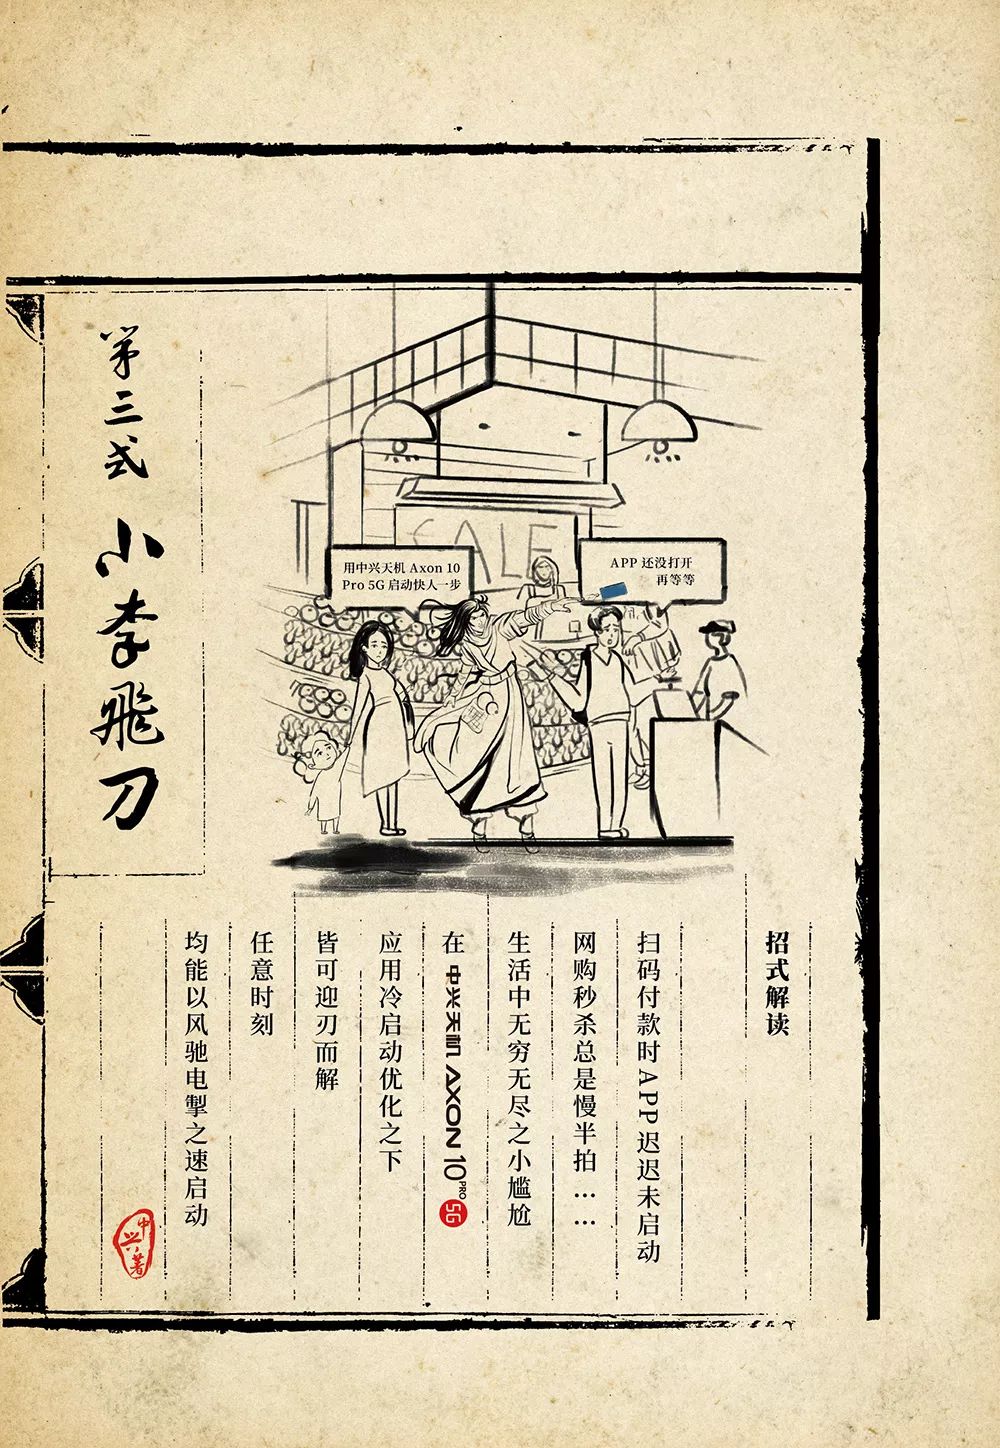 第三式
小李飛刀
SALE
用中兴天机 Axon 10
Pro 5G 启动快人一步
APP 还没打开
再等等
招式解读
扫码付款时APP迟迟未启动
网购秒杀总是慢半拍……
生活中无穷无尽之小尴尬
在 中兴天机 AXON 10 PRO 5G
应用冷启动优化之下
皆可迎刃而解
任意时刻
均能以风驰电掣之速启动
中兴著